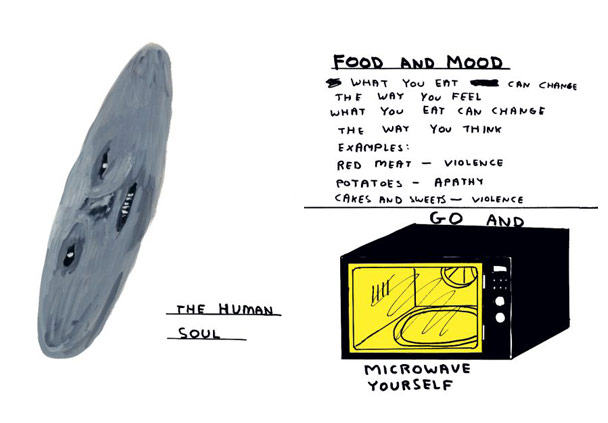 THE HUMAN
SOUL
FOOD AND MOOD
WHAT YOU EAT CAN CHANGE
THE WAY YOU FEEL
WHAT YOU EAT CAN CHANGE
THE WAY YOU THINK
EXAMPLES:
RED MEAT - VIOLENCE
POTATOES - APATHY
CAKES AND SWEETS - VIOLENCE
GO AND
MICROWAVE
YOURSELF